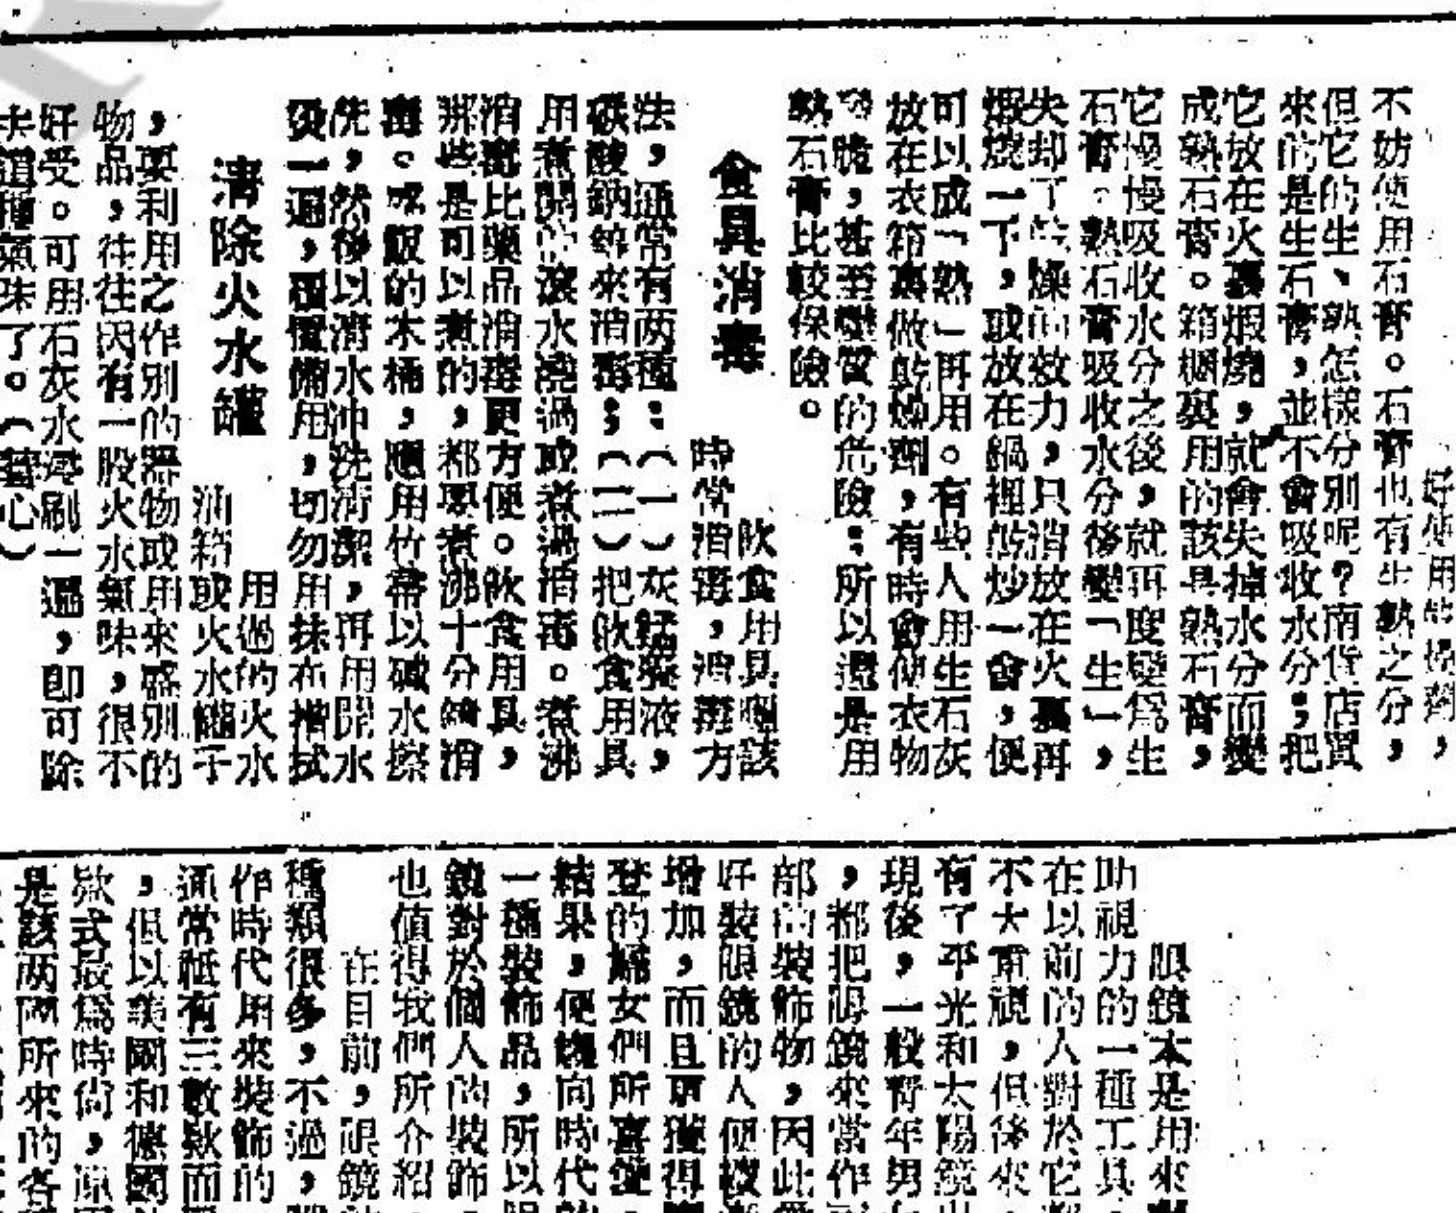 不妨使用石膏。石膏也有生熟之分，
但它的生、熟怎樣分別呢？南貨店買
來的是生石膏，並不會吸收水分；把
它放在火裏煆燒，就會失掉水分而變
成熟石膏。箱櫃裏用的該是熟石膏，
它慢慢吸收水分之後，就再度變爲生
石膏。熟石膏吸收水分後變「生」，
失却了乾燥的效力，只消放在火裏再
煆燒一下，或放在鍋裡乾炒一會，便
可以成「熟」再用。有些人用生石灰
放在衣箱裏做乾燥劑，有時會使衣物
脆，甚至變質的危險：所以還是用
熟石膏比較保險。
食具消毒
飲食用具應該
時常消毒，消毒方
法，通常有两種：（一）灰錳養液，
碳酸鈉等來消毒；（二）把飲食用具
用煮開的滾水澆過或煮過消毒。煮沸
消毒比藥品消毒更方便。飲食用具，
那些是可以煮的，都要煮沸十分鐘消
毒。盛飯的木桶，應用竹帚以碱水擦
洗，然後以清水冲洗清潔，再用開水
燙一遍，覆置備用，切勿用抹布揩拭
清除火水罐
用過的火水
油箱或火水罐子
，要利用之作別的器物或用來盛別的
物品，往往因有一股火水氣味，很不
好受。可用石灰水洗刷一遍，即可除
去這種氣味了。（藍心）
眼鏡本是用來
助視力的一種工具
在以前的人對於它
不大重視，但後來
有了平光和太陽鏡出
現後，一般靑年男
，都把眼鏡來當作
部的裝飾物，因此
好裝眼鏡的人便
增加，而且更獲得
登的婦女們所喜愛
結果，便趨向時代
一種裝飾品，所以眼
鏡對於個人的裝飾
也值得我們所介紹
在目前，眼鏡
種類很多，不過，
作時代用來裝飾的
通常祗有三數欵而
，但以美國和德國
欵式最爲時尙，原
是該两國所來的各